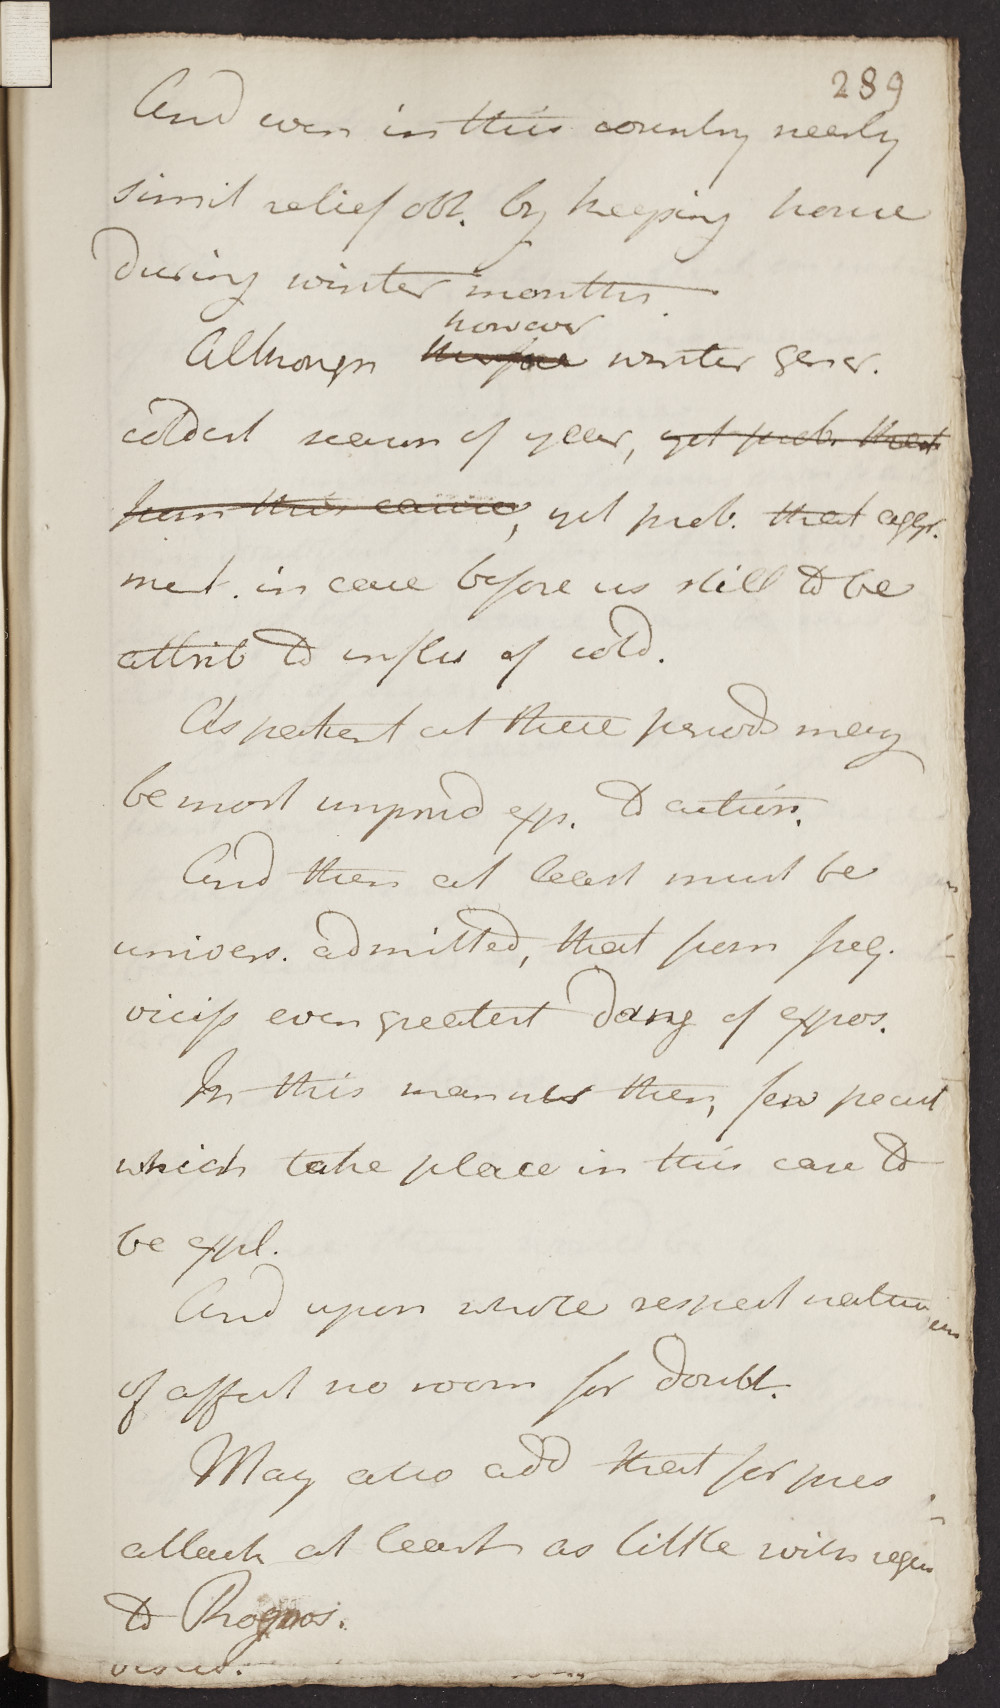 289
And even in this country nearly
simil relief obt. by keeping house
during winter months
however
Although therefore winter gener.
coldest season of year, yet prob. that
from this cause, yet prob. that aggr.
ment. in case before us still to be
attrib to influ of cold.
As patient at these periods may
be most unprud exp. to action.
And then at least must be
univers. admitted, that from freq.
viciss even greatest dang of expos.
In this manner then, few pecul
which take place in this case to
be expl.
And upon whole respect nature
of affect no room for doubt.
May also add that for pres
attack at least as little with regar
to Prognos.